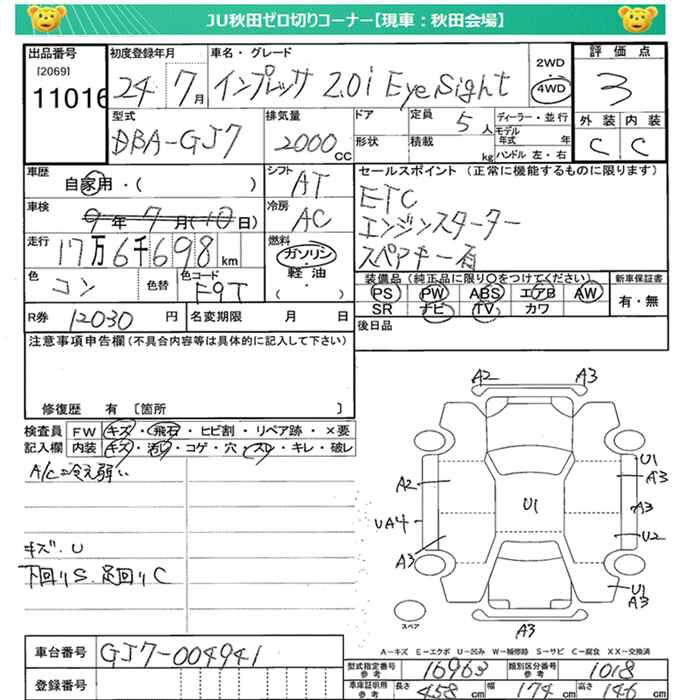 JU秋田ゼロ切りコーナー【現車：秋田会場】
出品番号 初度登録年月 車名・グレード 2WD 4WD 評価点
[2069]
11016 24 7月 インプレッサ 2.0i EyeSight 3
型式 排気量 ドア 定員 5人 ディーラー・並行 外装 内装
DBA-GJ7 2000cc 形状 積載 kg モデル年式 年 C C
ハンドル 左・右
車歴 自家用・( ) シフト AT セールスポイント (正常に機能するものに限ります)
ETC
車検 9年7月(10日) 冷房 AC エンジンスターター
走行 17万6千698km 燃料 ガソリン・軽油・( ) スペアキー有
色 コン 色替 色コード F9T 装備品 (純正品に限り○をつけてください) 新車保証書
PS PW ABS エアB AW 有・無
SR ナビ TV カワ
R券 12030円 名変期限 月 日 後日品
注意事項申告欄(不具合内容等は具体的に記入して下さい)
修復歴 有 [箇所 ]
検査員 FW キズ・飛石・ヒビ割・リペア跡・×要
記入欄 内装 キズ・汚れ・コゲ・穴・スレ・キレ・破レ
A/C冷え弱い
キズ.U
下回りS.足回りC
A2 A3
A2 U1 U1
A3
UA4 A3
A3 U2
U1
A3
A3
スペア
A-キズ E-エクボ U-凹み W-補修跡 S-サビ C-腐食 XX-交換済
車台番号 GJ7-004941
登録番号
型式指定番号 参考 16963 類別区分番号 参考 1018
車庫証明用 参考 長さ 458cm 幅 174cm 高さ 146cm